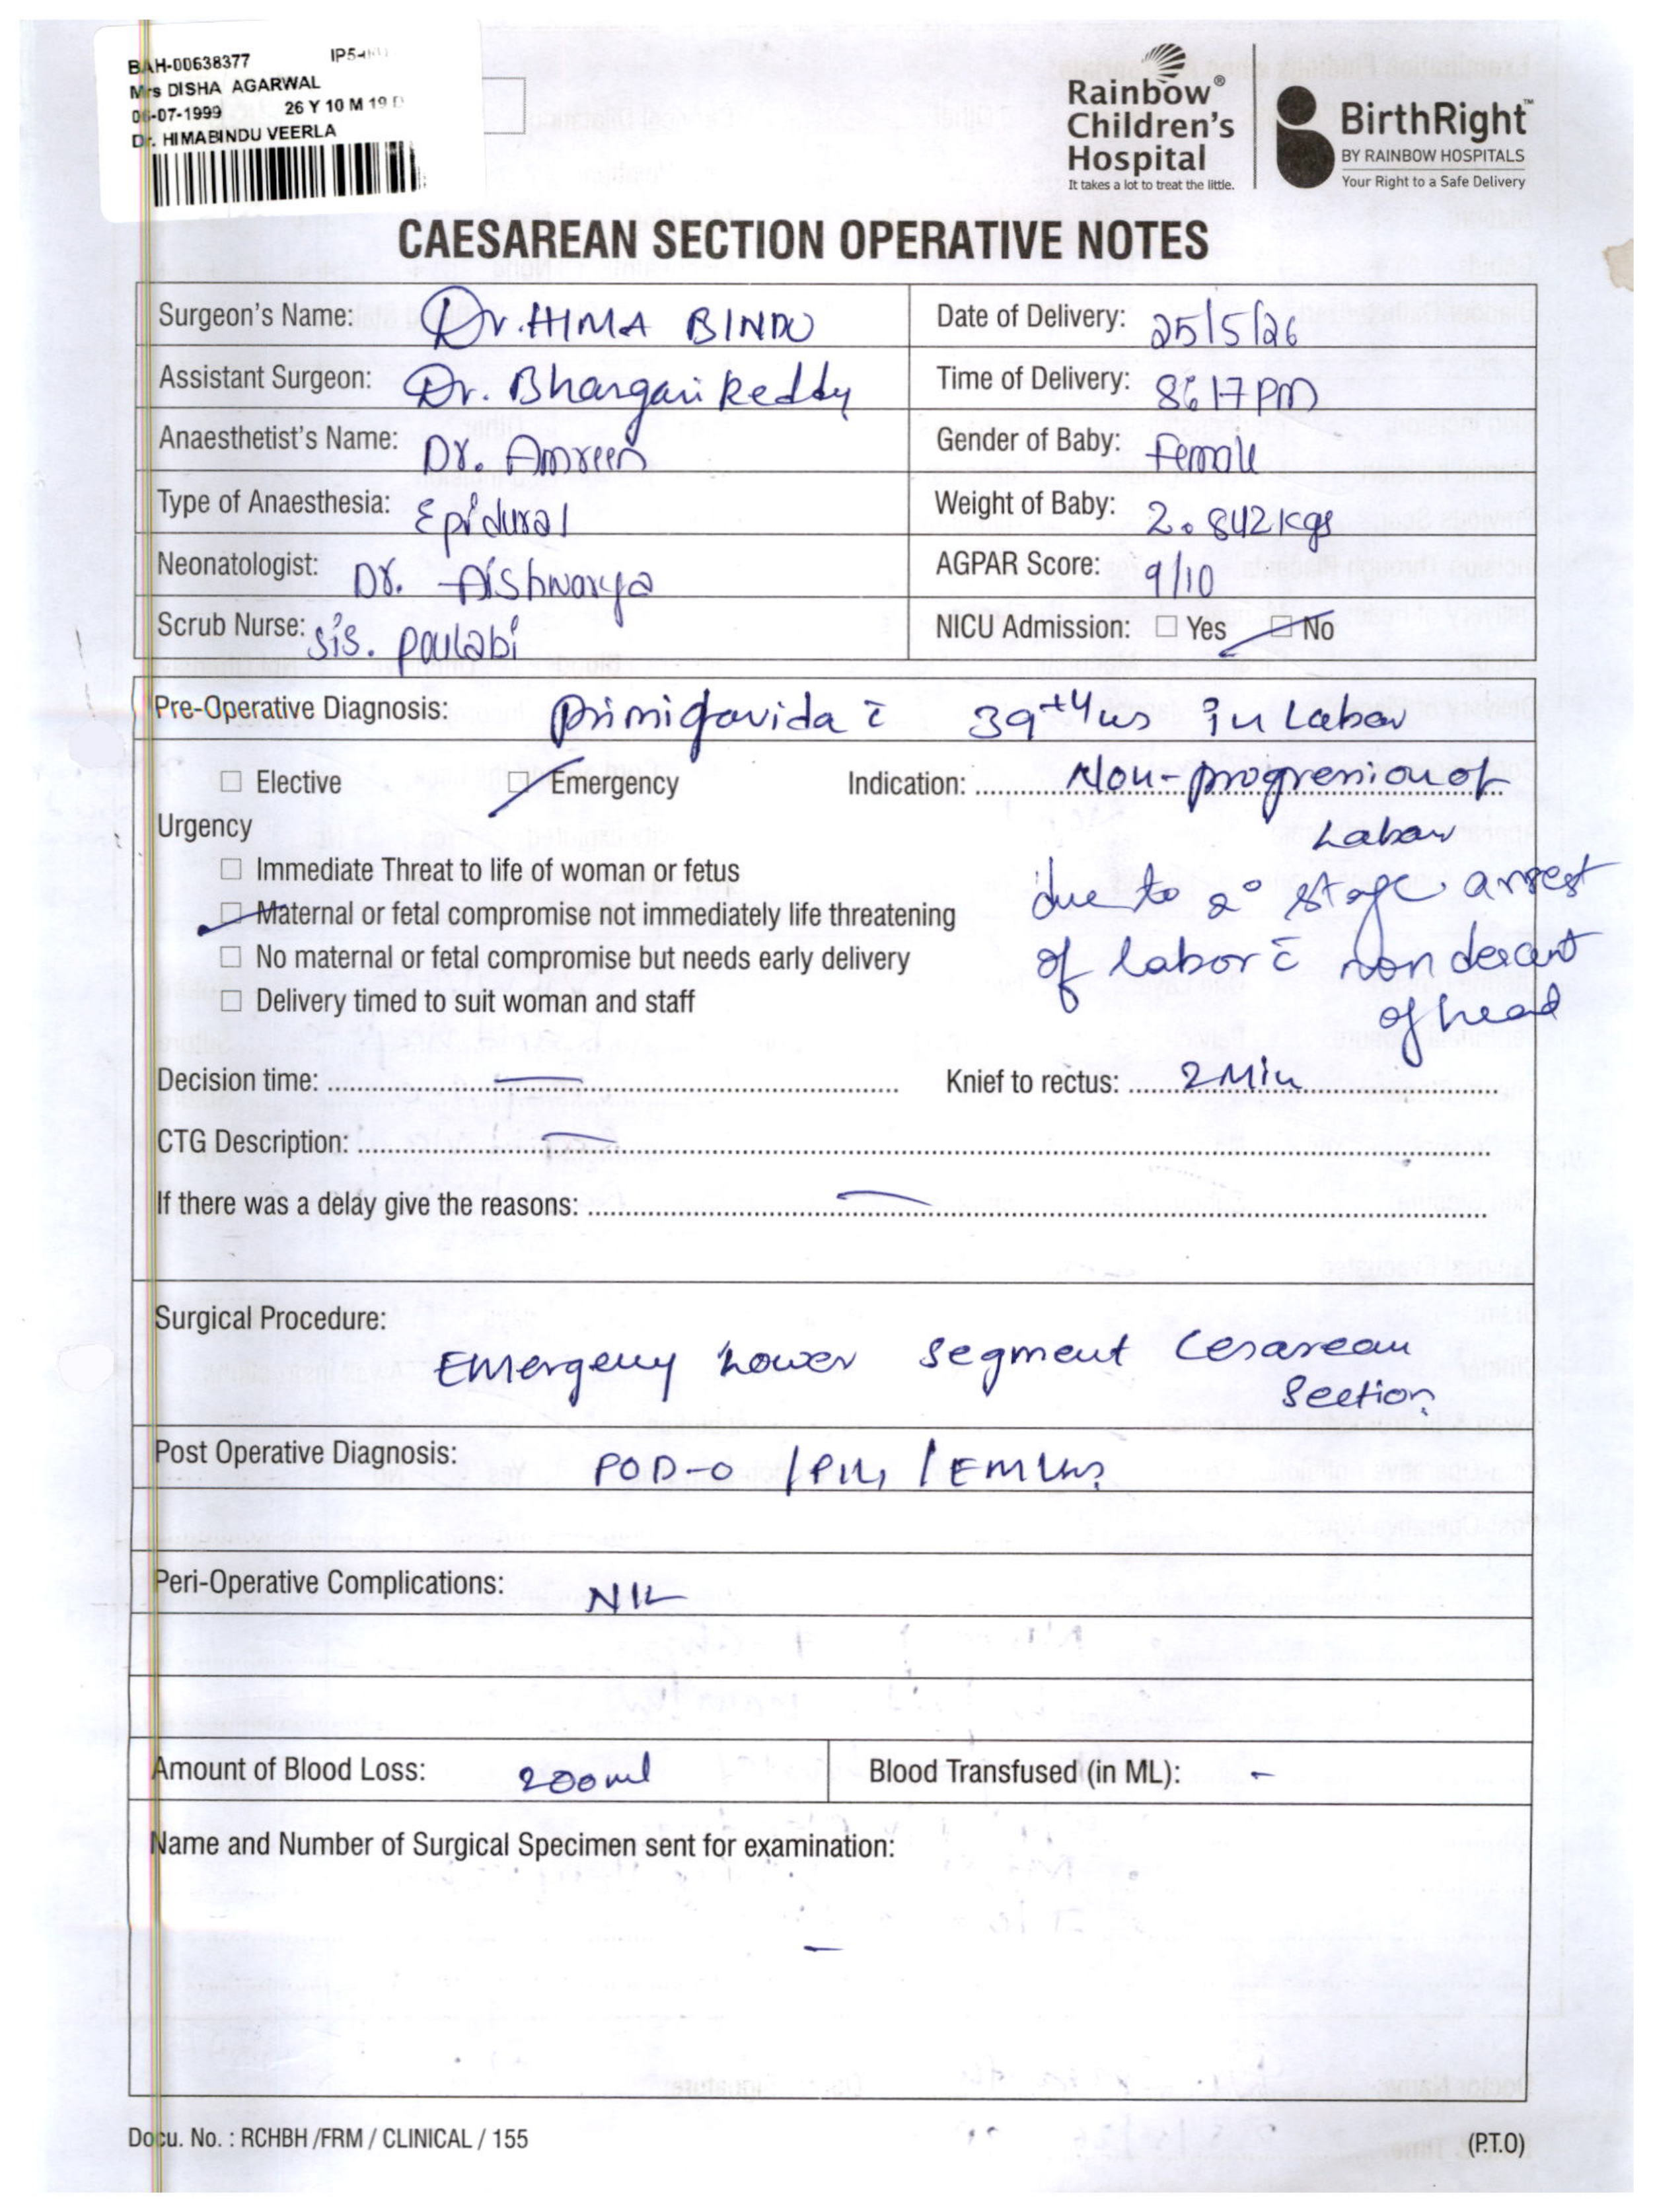 BAH-00638377 IP5-
Mrs DISHA AGARWAL
06-07-1999 26 Y 10 M 19 D
Dr. HIMABINDU VEERLA
Rainbow®
Children's
Hospital
It takes a lot to treat the little.
BirthRight™
BY RAINBOW HOSPITALS
Your Right to a Safe Delivery
CAESAREAN SECTION OPERATIVE NOTES
Surgeon's Name: Dr. HIMA BINDU Date of Delivery: 25/5/26
Assistant Surgeon: Dr. Bhargavi Reddy Time of Delivery: 8:17 PM
Anaesthetist's Name: Dr. Amreen Gender of Baby: Female
Type of Anaesthesia: Epidural Weight of Baby: 2.842 kgs
Neonatologist: Dr. Aishwarya AGPAR Score: 9/10
Scrub Nurse: sis. NICU Admission: ☐ Yes ☑ No
Pre-Operative Diagnosis: Primigavida c̄ 39+4 ws in Labor
☐ Elective ☑ Emergency Indication: Non-progression of
Labor
Urgency
☐ Immediate Threat to life of woman or fetus
due to 2° stage arrest
☑ Maternal or fetal compromise not immediately life threatening
☐ No maternal or fetal compromise but needs early delivery of labor c̄ non descent
☐ Delivery timed to suit woman and staff of head
Decision time: — Knief to rectus: 2 Min
CTG Description: —
If there was a delay give the reasons: —
Surgical Procedure:
Emergency Lower Segment Cesarean
Section
Post Operative Diagnosis: POD-0 /P1L1 /
Peri-Operative Complications: NIL
Amount of Blood Loss: 200ml Blood Transfused (in ML): -
Name and Number of Surgical Specimen sent for examination:
—
Docu. No. : RCHBH /FRM / CLINICAL / 155 (P.T.O)